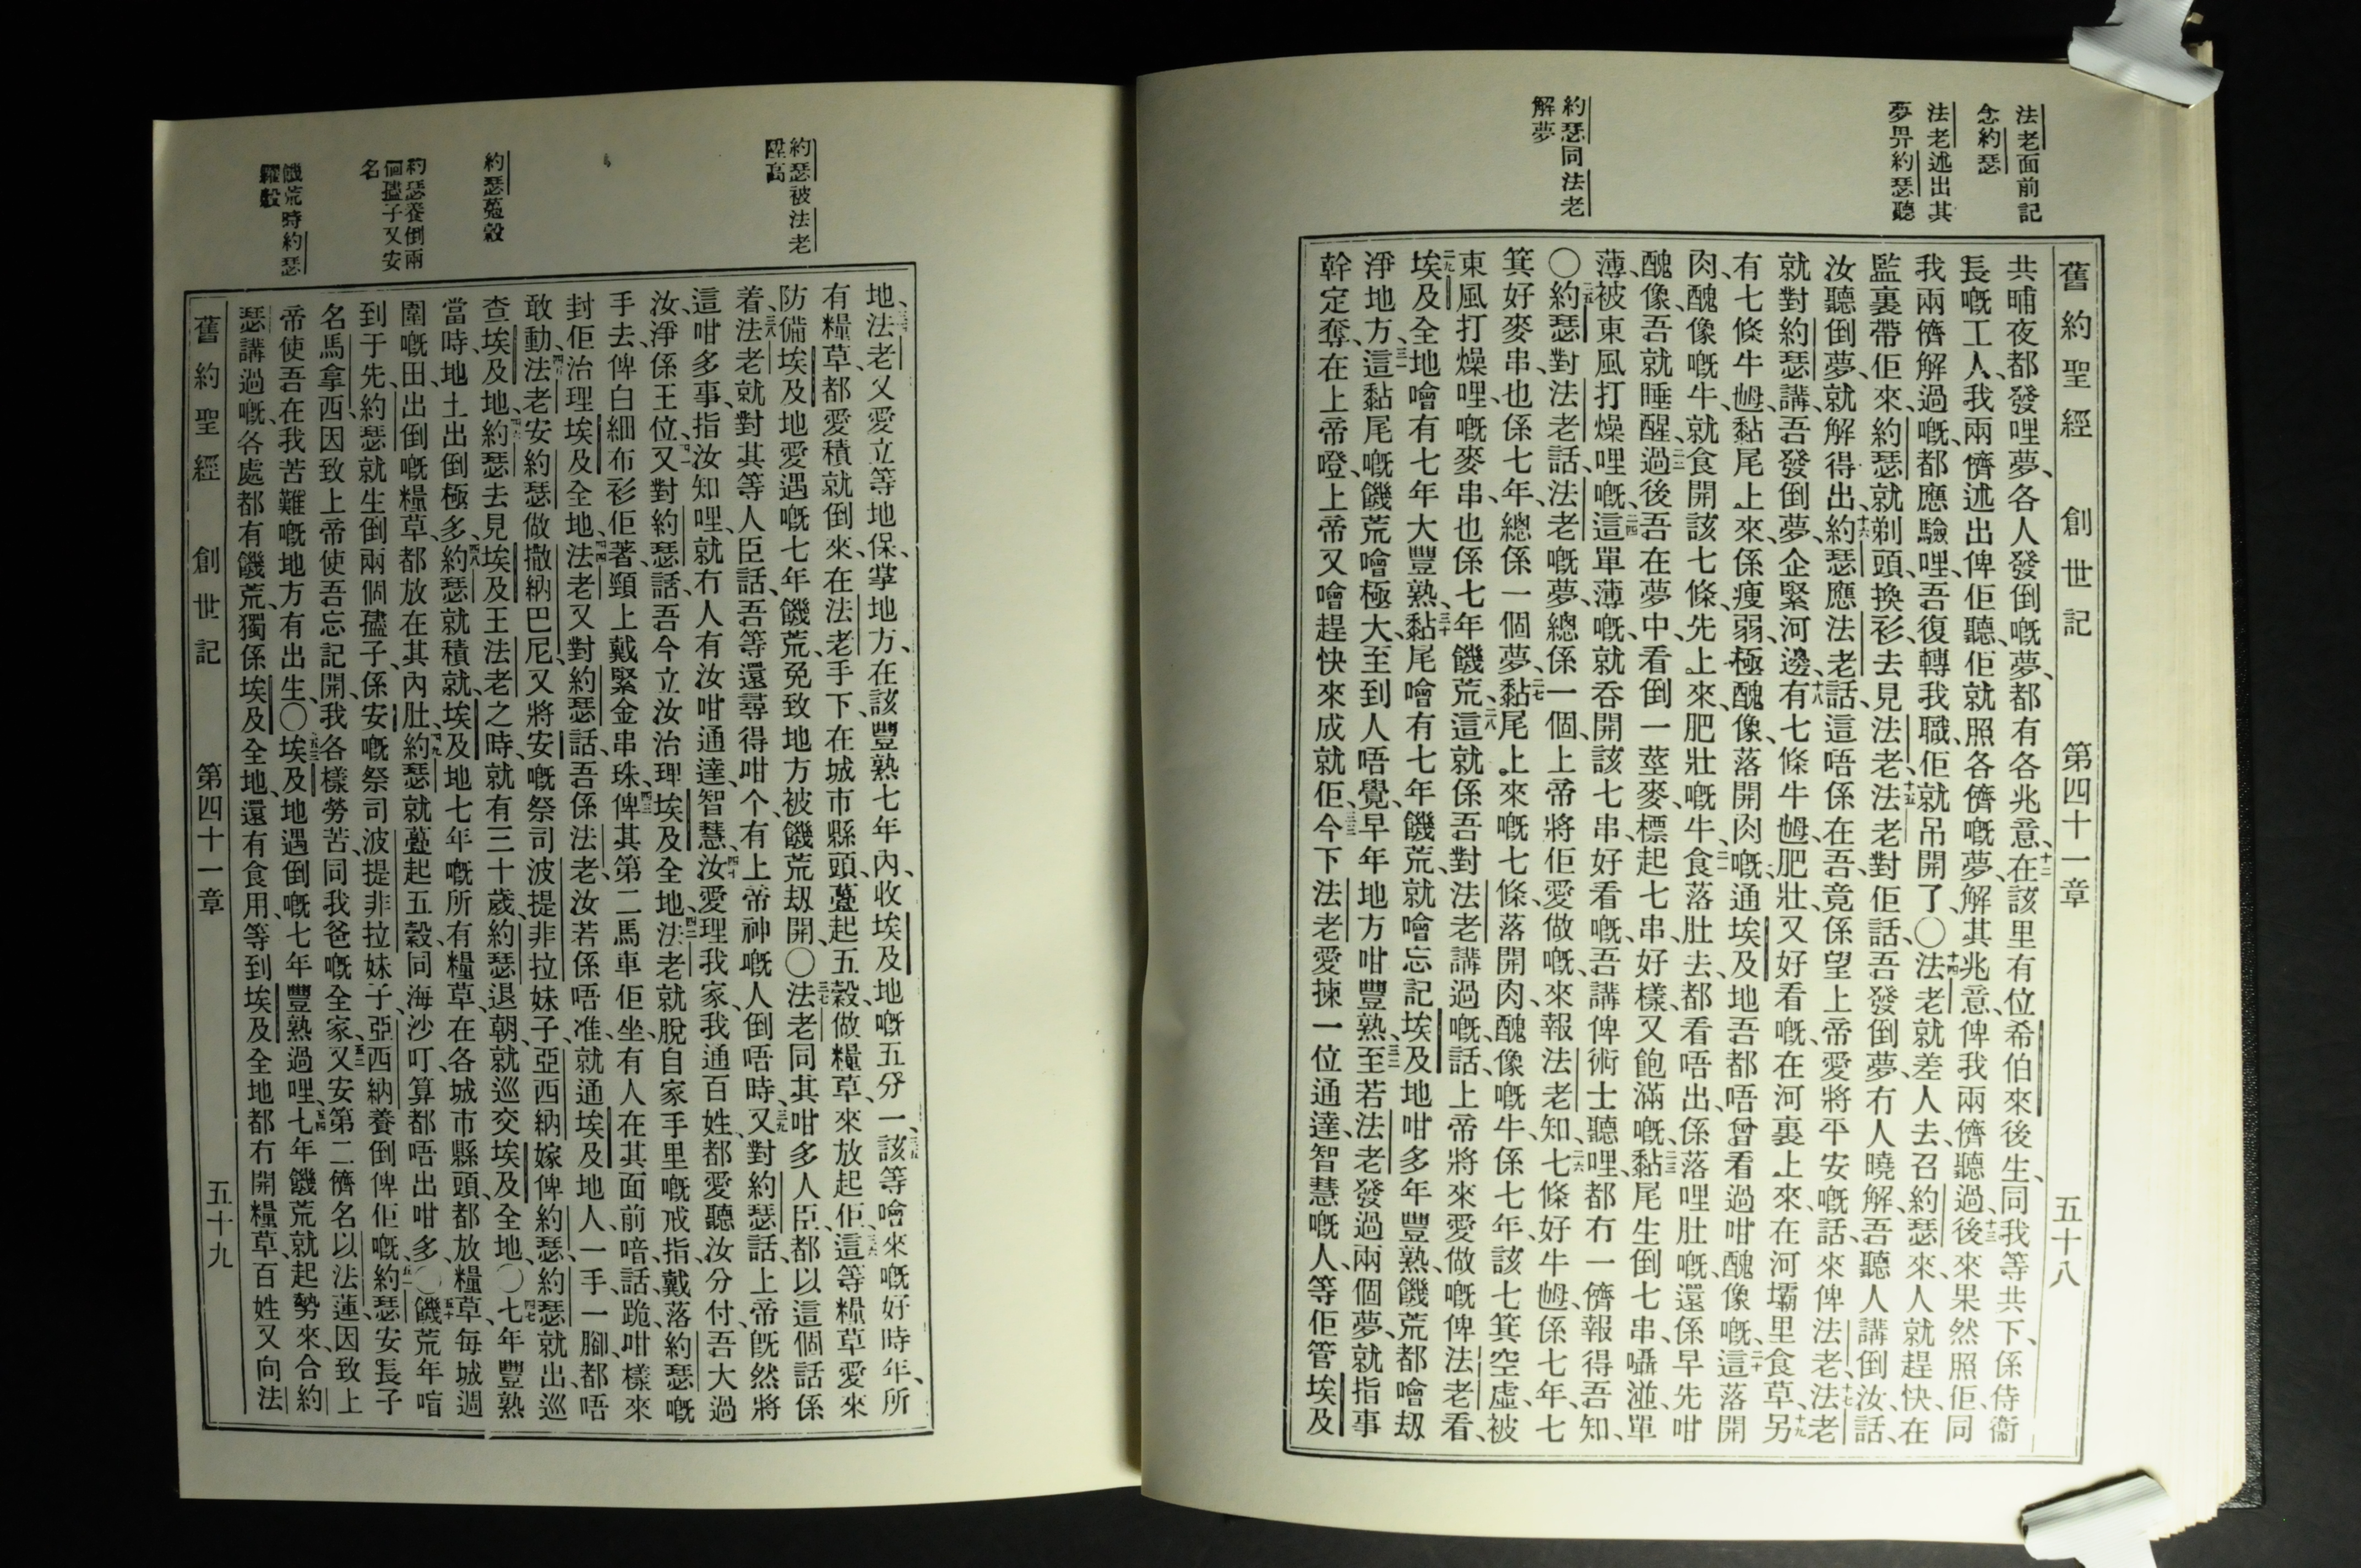 法老面前記
念約瑟
法老述出其
夢畀約瑟聽
約瑟同法老
解夢
舊約聖經 創世記 第四十一章 五十八
共晡夜都發哩夢、各人發倒嘅夢、都有各兆意、十二在該里有位希伯來後生、同我等共下、係侍衞
長嘅工人、我兩儕述出俾佢聽、佢就照各儕嘅夢、解其兆意、俾我兩儕聽、十三過後來果然照佢、同
我兩儕解過嘅、都應驗哩、吾復轉我職、佢就吊開了、〇十四法老就差人去召約瑟來、人就趕快、在
監裏帶佢來、約瑟就剃頭、換衫、去見法老、十五法老對佢話、吾發倒夢、冇人曉解、吾聽人講倒汝、話、
汝聽倒夢、就解得出、十六約瑟應法老話、這唔係在吾、竟係望上帝愛將平安嘅話、來俾法老、十七法老
就對約瑟講、吾發倒夢、企緊河邊、十八有七條牛乸、肥壯、又好看嘅、在河裏上來、在河壩里食草、十九另
有七條牛乸、黏尾上來、係瘦弱、極醜像、落開肉嘅、通埃及地吾都唔曾看過咁醜像嘅、二十這落開
肉、醜像嘅牛、就食開該七條、先上來、肥壯嘅牛、二一食落肚去、都看唔出、係落哩肚嘅、還係早先咁
醜像、吾就睡醒、二二過後吾在夢中、看倒一莖麥、標起七串、好樣、又飽滿嘅、二三黏尾生倒七串、囁澁、單
薄、被東風打燥哩嘅、二四這單薄嘅、就吞開該七串好看嘅、吾講俾術士聽哩、都冇一儕報得吾知、
〇二五約瑟對法老話、法老嘅夢、總係一個、上帝將佢愛做嘅、來報法老知、二六七條好牛乸、係七年、七
箕好麥串、也係七年、總係一個夢、二七黏尾上來嘅七條、落開肉、醜像嘅牛、係七年、該七箕空虛、被
東風打燥哩嘅麥串、也係七年饑荒、二八這就係吾對法老講過嘅話、上帝將來愛做嘅、俾法老看、
二九埃及全地噲有七年大豐熟、三十黏尾噲有七年饑荒、就噲忘記埃及地咁多年豐熟、饑荒都噲刼
淨地方、三一這黏尾嘅饑荒噲極大、至到人唔覺、早年地方咁豐熟、三二至若法老發過兩個夢、就指事
幹定奪、在上帝噔、上帝又噲趕快來成就佢、三三今下法老愛揀一位通達、智慧嘅人、等佢管埃及
約瑟被法老
陞高
約瑟蒐穀
約瑟養倒兩
個孻子又安
名
饑荒時約瑟
糶穀
地、三四法老又愛立等地保、掌地方、在該豐熟七年內、收埃及地嘅五分一、三五該等噲來嘅好時年、所
有糧草、都愛積就倒來、在法老手下、在城市縣頭、躉起五穀、做糧草、來放起佢、三六這等糧草愛來
防備埃及地愛遇嘅七年饑荒、免致地方被饑荒刼開、〇三七法老同其咁多人臣、都以這個話係
着、三八法老就對其等人臣話、吾等還尋得咁个、有上帝神嘅人倒唔時、三九又對約瑟話、上帝既然將
這咁多事、指汝知哩、就冇人有汝咁通達、智慧、四十汝愛理我家、我通百姓、都愛聽汝分付、吾大過
汝、淨係王位、四一又對約瑟話、吾今立汝治理埃及全地、四二法老就脫自家手里嘅戒指、戴落約瑟嘅
手去、俾白細布衫佢著、頸上戴緊金串珠、四三俾其第二馬車佢坐、有人在其面前喑話、跪、咁樣來
封佢治理埃及全地、四四法老又對約瑟話、吾係法老、汝若係唔准、就通埃及地人、一手、一腳、都唔
敢動、四五法老安約瑟做撒納巴尼、又將安嘅祭司波提非拉妹子、亞西納嫁俾約瑟、約瑟就出巡
查埃及地、四六約瑟去見埃及王法老之時、就有三十歲、約瑟退朝、就巡交埃及全地、〇四七七年豐熟
當時、地土出倒極多、四八約瑟就積就埃及地七年嘅所有糧草、在各城市縣頭、都放糧草、每城週
圍嘅田、出倒嘅糧草、都放在其內肚、四九約瑟就躉起五穀、同海沙叮、算都唔出咁多、〇五十饑荒年唁
到于先、約瑟就生倒兩個孻子、係安嘅祭司波提非拉妹子、亞西納養倒俾佢嘅、五一約瑟安長子
名馬拿西、因致上帝使吾忘記開、我各樣勞苦、同我爸嘅全家、五二又安第二儕名以法蓮、因致上
帝使吾在我苦難嘅地方有出生、〇五三埃及地遇倒嘅七年豐熟過哩、五四七年饑荒就起勢來、合約
瑟講過嘅、各處都有饑荒、獨係埃及全地、還有食用、等到埃及全地都冇開糧草、百姓又向法
舊約聖經 創世記 第四十一章 五十九